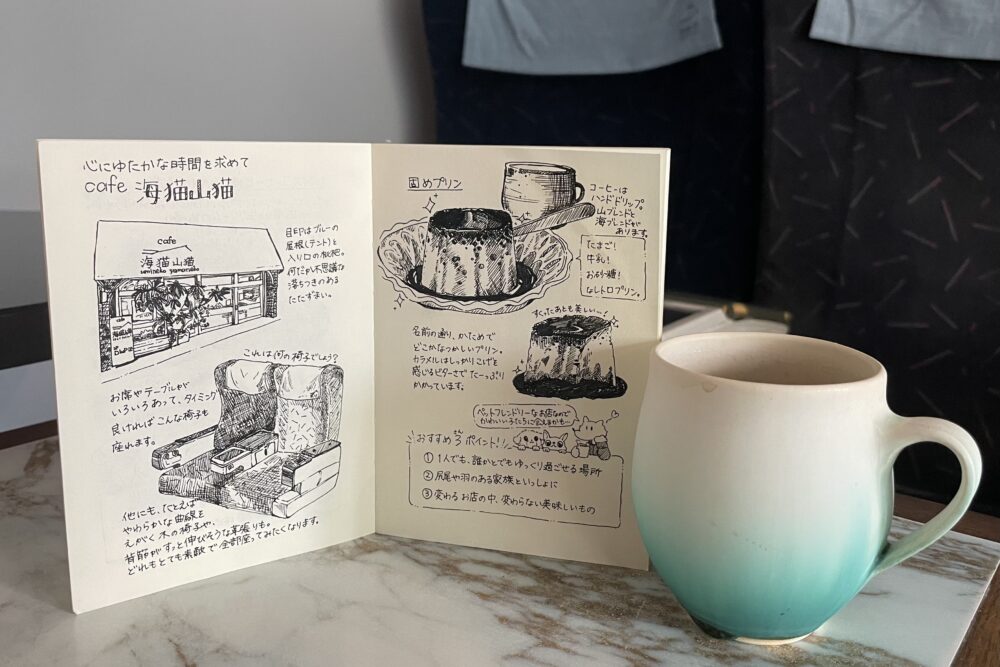 心にゆたかな時間を求めて
cafe 海猫山猫
目印はブルーの
屋根(テント)と
入り口の枇杷。
何だか不思議な
落ちつきのある
たたずまい。
cafe
海猫山猫
umineko yamaneko
これは何の椅子でしょう?
お席やテーブルが
いろいろあって、タイミング
良ければこんな椅子も
座れます。
他にも、たとえば
やわらかな曲線を
えがく木の椅子や、
背筋がすっと伸びそうな革張りも。
どれもとても素敵で全部座ってみたくなります。
固めプリン
コーヒーは
ハンドドリップ。
山ブレンドと
海ブレンドが
あります。
たまご!
牛乳!
お砂糖!
なレトロプリン。
すくったあとも美しい…!
名前の通り、かためで
どこかなつかしいプリン。
カラメルはしっかりこげを
感じるビターさでたーっぷり
かかっています。
ペットフレンドリーなお店なので
かわいい子たちに会えるかも…
おすすめ3ポイント!
① 1人でも、誰かとでもゆっくり過ごせる場所
② 尻尾や羽のある家族といっしょに
③ 変わるお店の中、変わらない美味しいもの